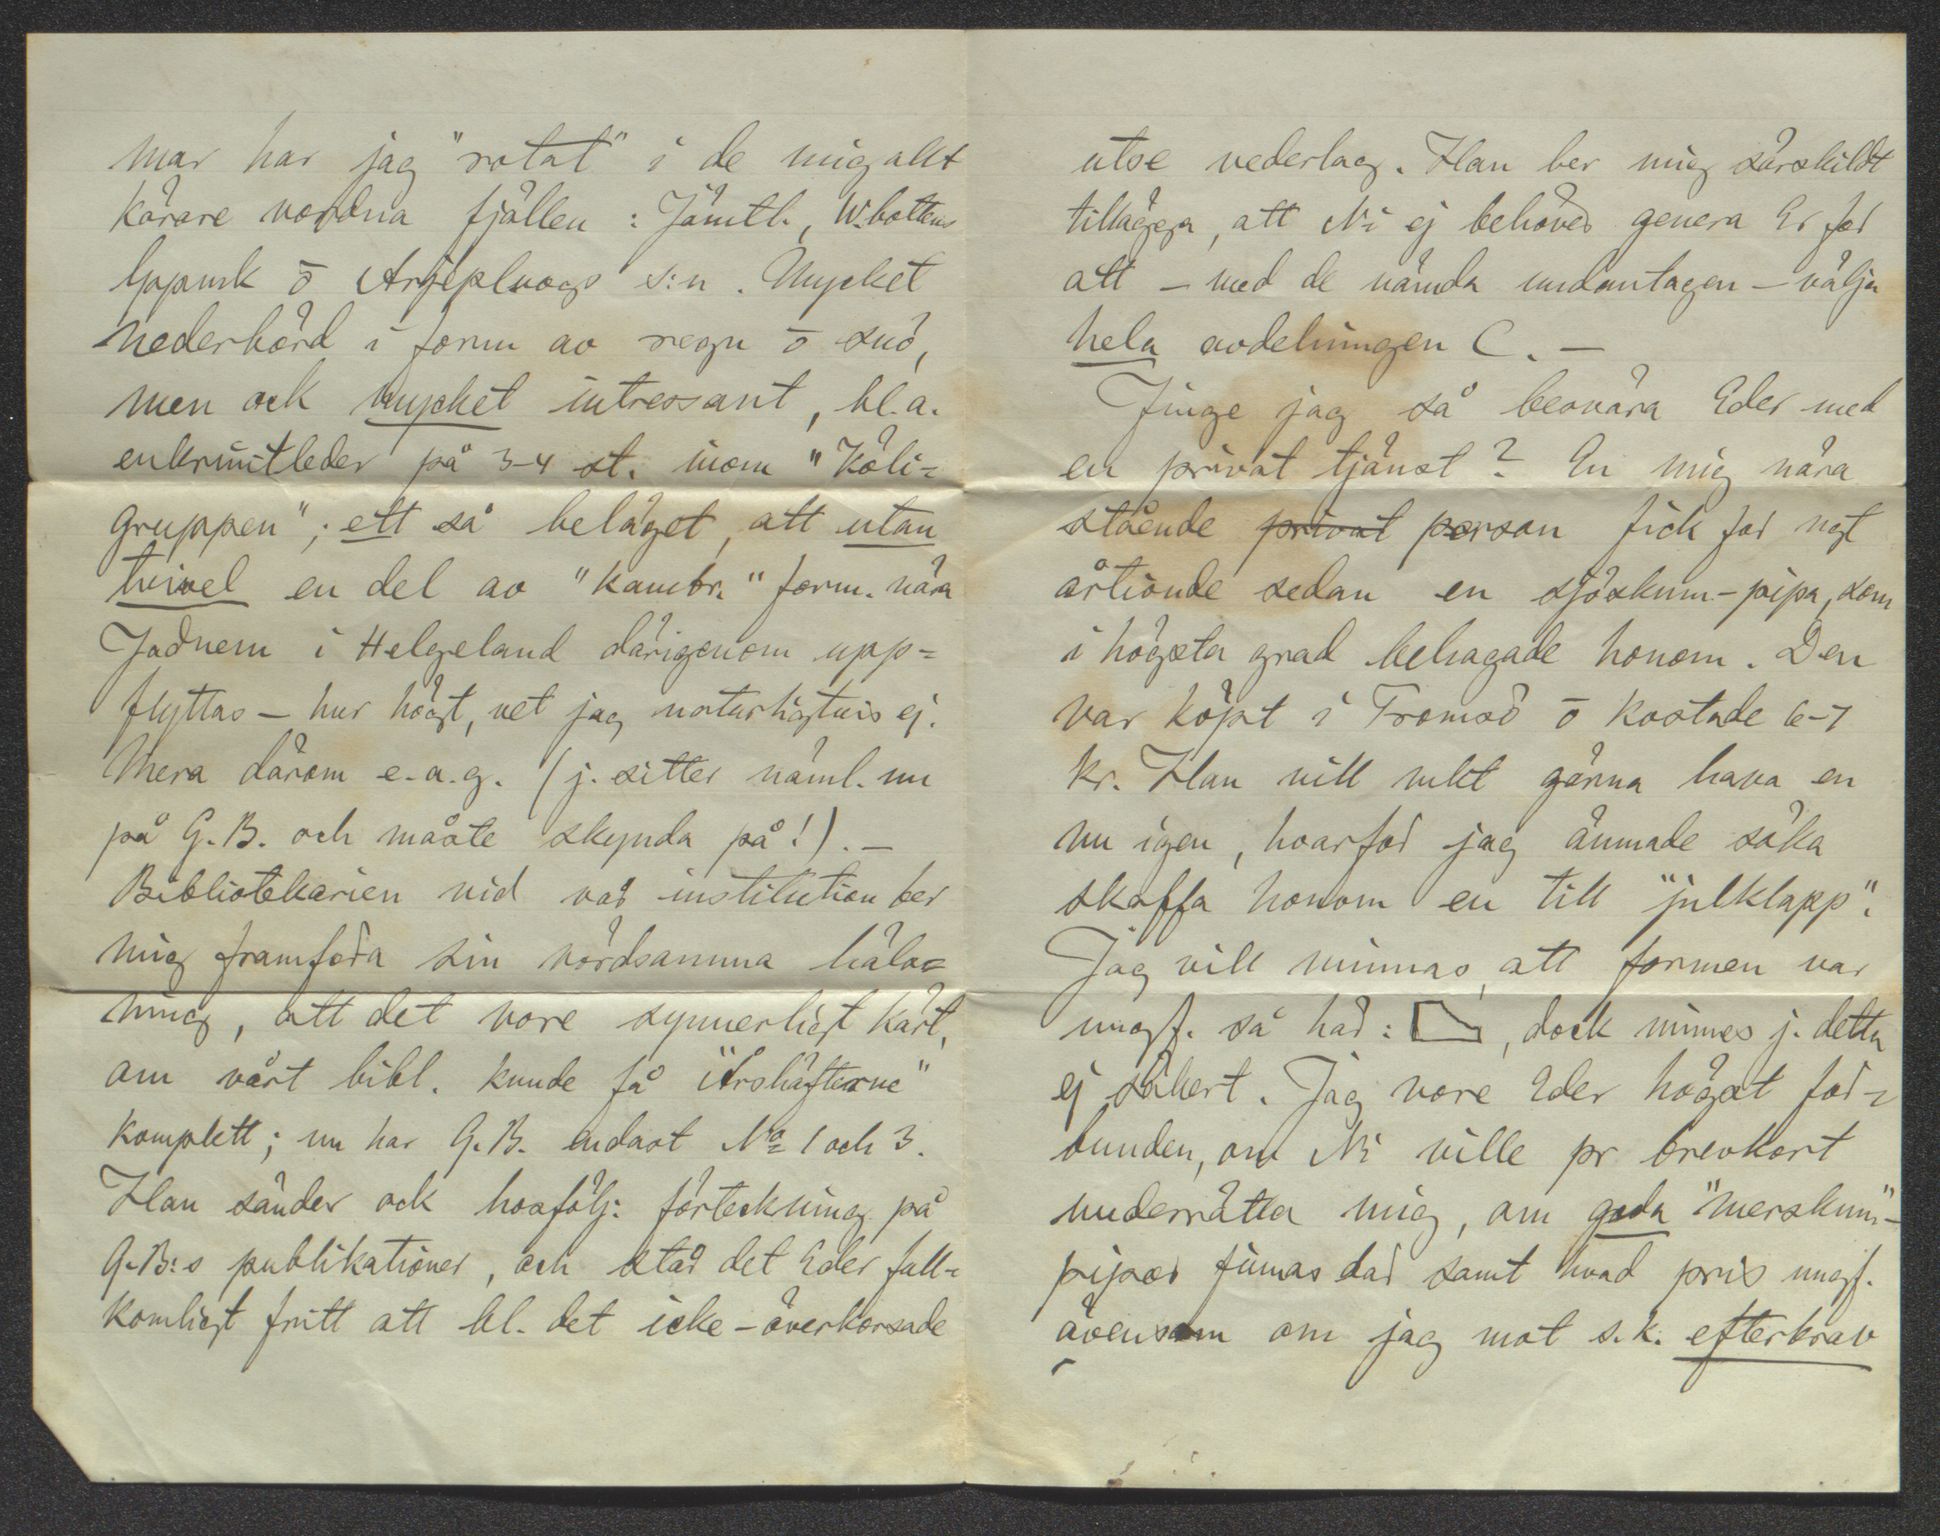 mar har jag "rotat" i de mig allt
kärare vordna fjällen: Jämtl., W.bottens
lappmk ō Arjepluogs s:n. Mycket
nederbörd i form av regn ō snö,
men ock mycket intressant, bl.a.
enkrinitleder på 3-4 st. inom "Köli=
gruppen"; ett så beläget, att utan
tvivel en del av "kambr." form. nära
i Helgeland därigenom upp=
flyttas - hur högt, vet jag naturligtvis ej.
Mera därom e.a.g. (j. sitter näml. nu
på G.B. och måste skynda på!). -
Bibliotekarien vid vår institution ber
mig framföra sin vördsamma häls=
ning, att det vore synnerligt kärt,
om vårt bibl. kunde få "Årshäfterne"
komplett; nu har G.B. endast No 1 och 3.
Han sänder ock hosfölj: förteckning på
G.B:s publikationer, och står det Eder full=
komligt fritt att bl. det icke-överkorsade
utse vederlag. Han ber mig särskildt
tillägga, att Ni ej behöver genera Er för
att - med de nämda undantagen - välja
hela avdelningen C. -
Finge jag så besvära Eder med
en privat tjänst? En mig nära
stående privat person fick för ngt
årtionde sedan en sjöskum-pipa, som
i högsta grad behagade honom. Den
var köpt i Tromsö ō kostade 6-7
kr. Han vill mkt gärna hava en
nu igen, hvarför jag ämnade söka
skaffa honom en till "julklapp".
Jag vill minnas, att formen var
ungf. så här: , dock minnes j. detta
ej säkert. Jag vore Eder högst för=
bunden, om Ni ville pr brevkort
underrätta mig, om goda "merskum"-
pipor finnas där samt hvad pris ungf.
ävensom om jag mot s.k. efterkrav